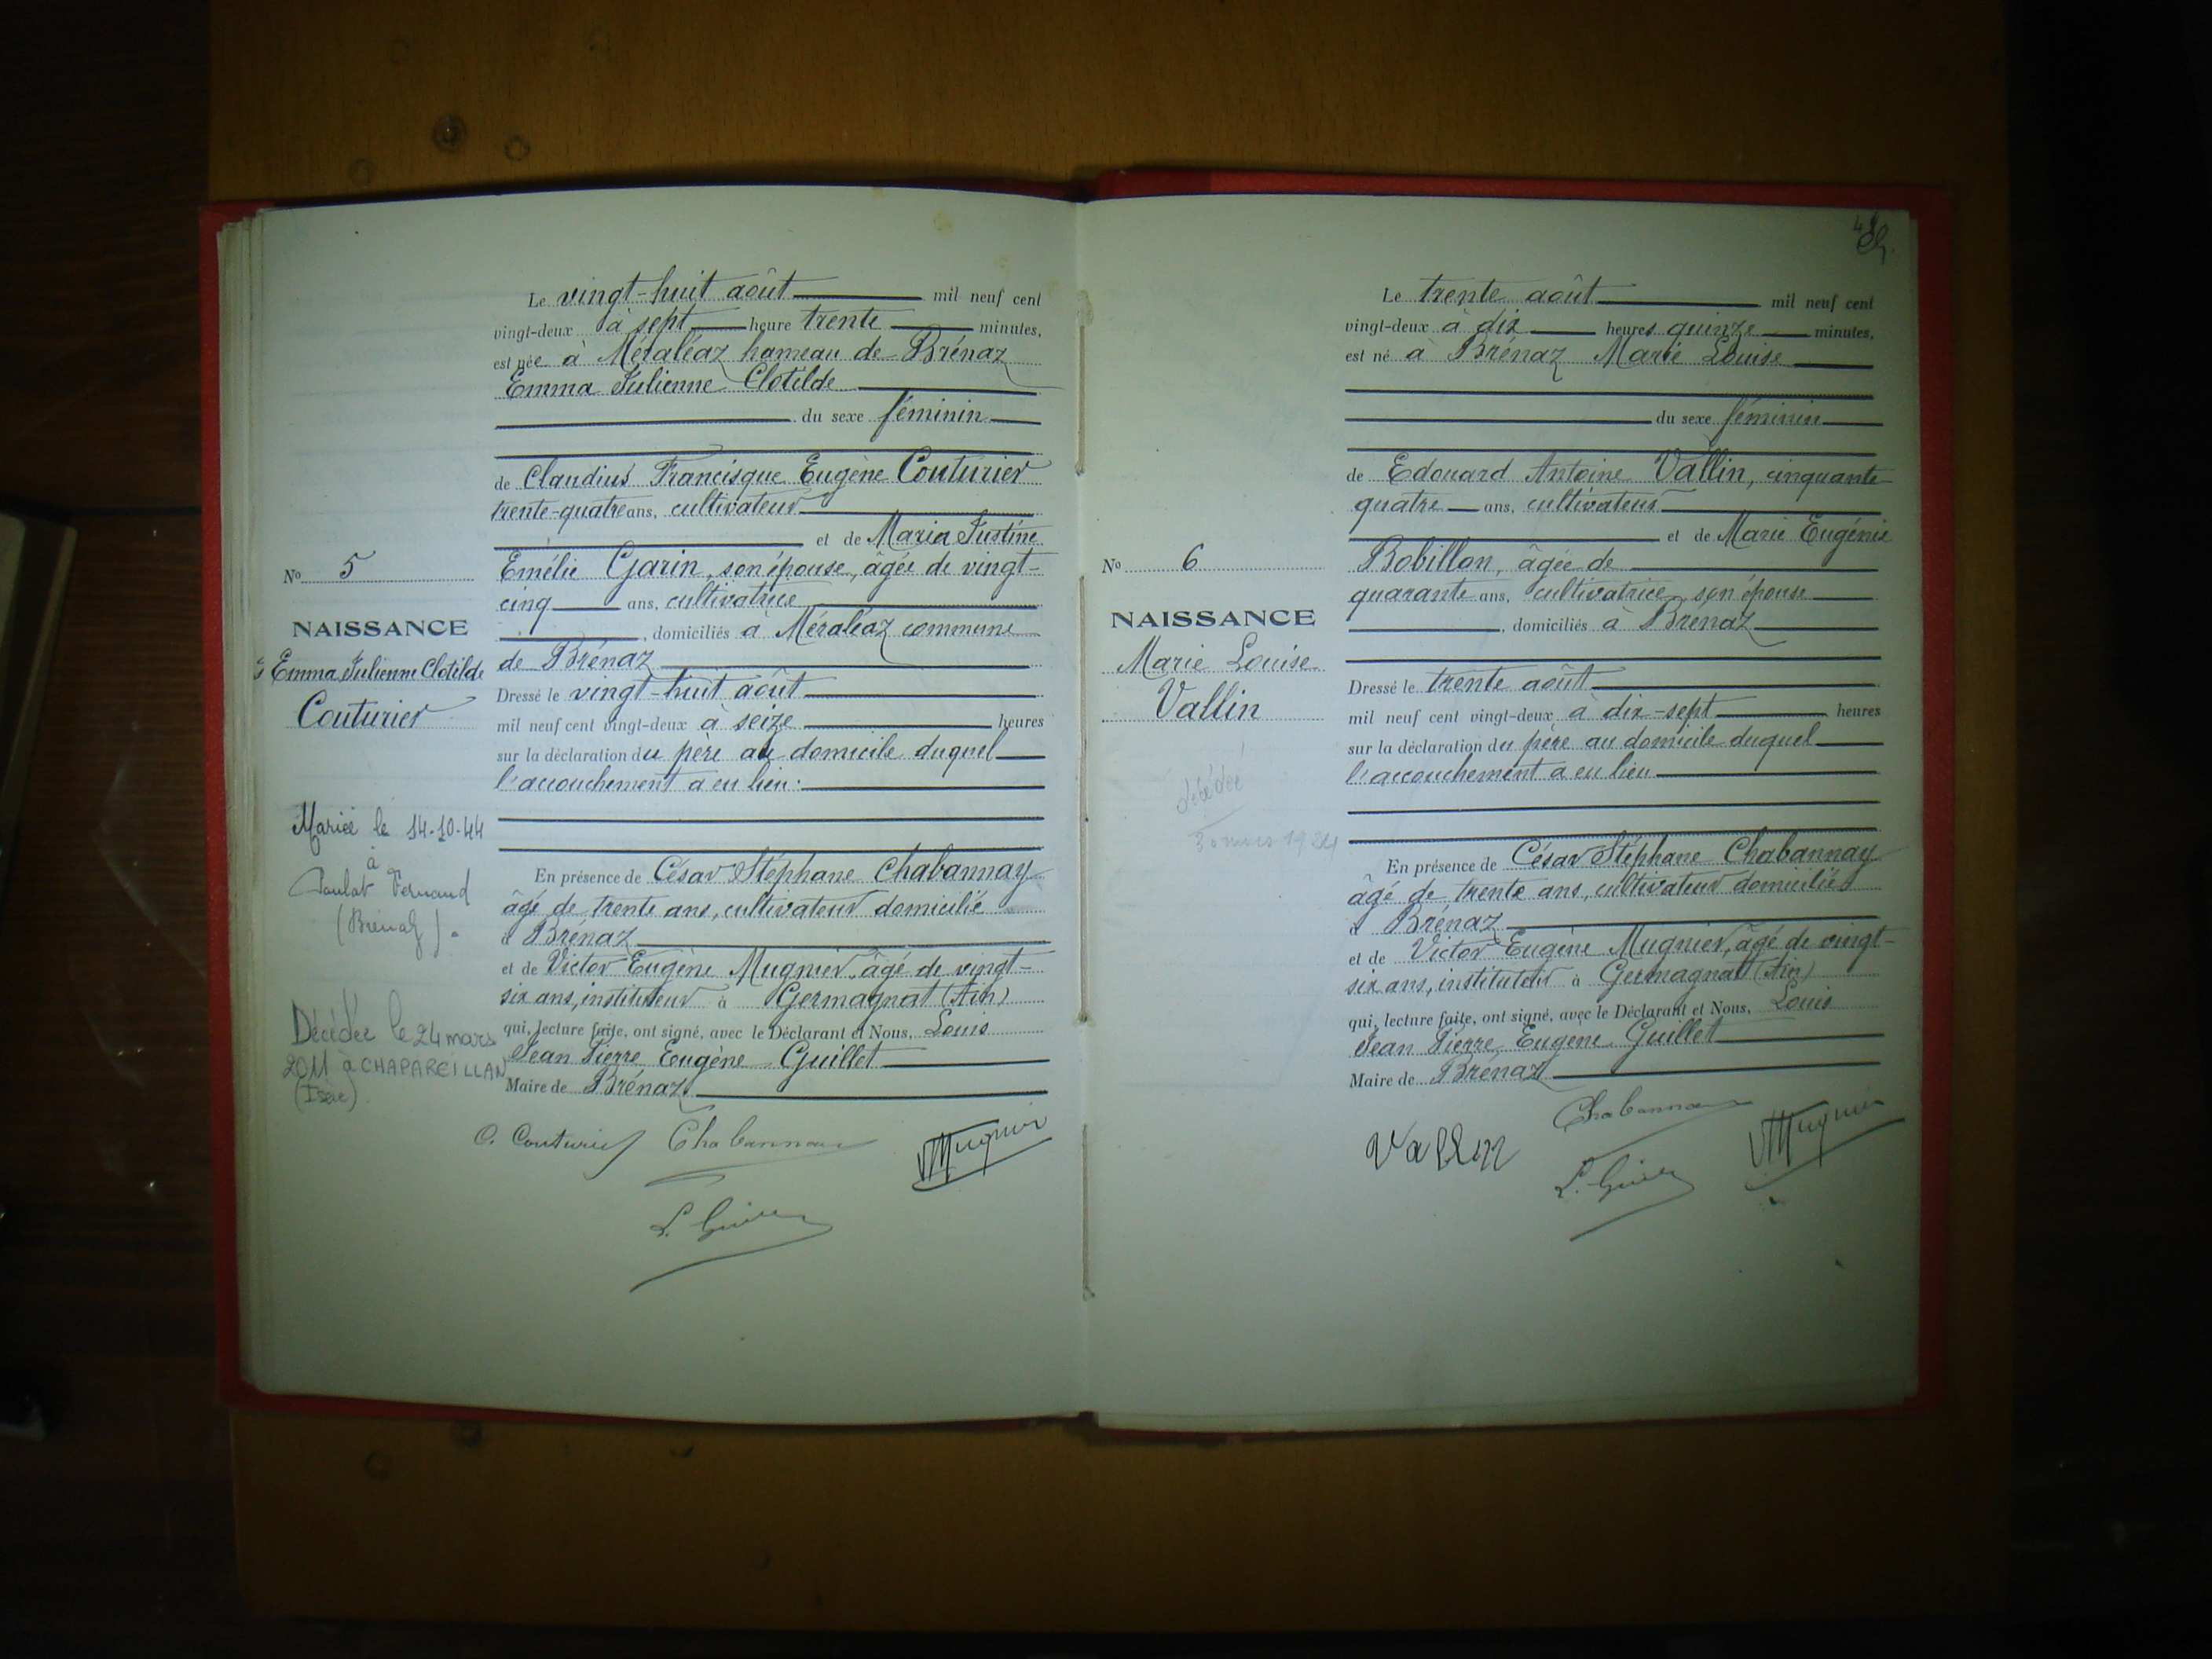 Le vingt-huit août mil neuf cent
vingt-deux à sept heure trente minutes,
est née à Méraléaz hameau de Brénaz
Emma Julienne Clotilde
du sexe féminin
de Claudius Francisque Eugène Couturier
trente-quatre ans, cultivateur
et de Maria Justine
Emélie Garin, son épouse, âgée de vingt-
cinq ans, cultivatrice
, domiciliés à Méraléaz commune
de Brénaz
Dressé le vingt-huit août
mil neuf cent vingt-deux à seize heures
sur la déclaration du père au domicile duquel
l'accouchement a eu lieu.
En présence de César Stéphane Chabannay
âgé de trente ans, cultivateur domicilié
à Brénaz
et de Victor Eugène Mugnier, âgé de vingt-
six ans, instituteur à Germagnat (Ain)
qui, lecture faite, ont signé, avec le Déclarant et Nous, Louis
Jean Pierre Eugène Guillet
Maire de Brénaz
C. Couturier Chabannay VMugnier
L. Guillet
No 5
NAISSANCE
Emma Julienne Clotilde
Couturier
Mariée le 14-10-44
à
Fernand
(Brénaz).
Décédée le 24 mars
2011 à CHAPAREILLAN
(Isère).
Le trente août mil neuf cent
vingt-deux à dix heures quinze minutes,
est né à Brénaz Marie Louise
du sexe féminin
de Edouard Antoine Vallin, cinquante-
quatre ans, cultivateur
et de Marie Eugénie
Bobillon, âgée de
quarante ans, cultivatrice, son épouse
, domiciliés à Brénaz
Dressé le trente août
mil neuf cent vingt-deux, à dix-sept heures
sur la déclaration du père au domicile duquel
l'accouchement a eu lieu
En présence de César Stéphane Chabannay
âgé de trente ans, cultivateur domicilié
à Brénaz
et de Victor Eugène Mugnier, âgé de vingt-
six ans, instituteur à Germagnat (Ain)
qui, lecture faite, ont signé, avec le Déclarant et Nous, Louis
Jean Pierre Eugène Guillet
Maire de Brénaz
Chabannay
Vallin VMugnier
L. Guillet
No 6
NAISSANCE
Marie Louise
Vallin
décédée